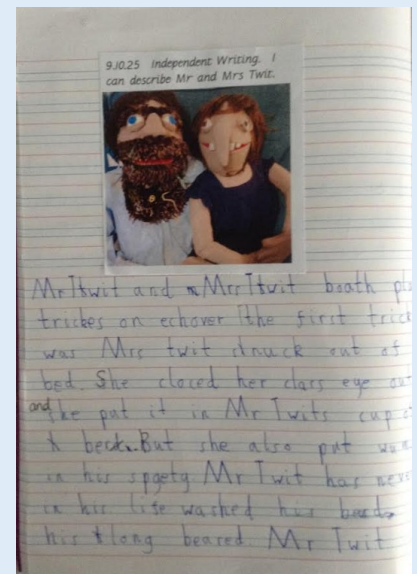 9.10.25 Independent Writing. I
can describe Mr and Mrs Twit.
Mr Ttwit and Mrs Ttwit boath pl
trickes on echover the first trick
was Mrs twit snuck out of
bed. She cloced her class eye out
and she put it in Mr Twits cup o
But she also put
in his spgety Mr Twit has nev
in his life washed his
his long beared. Mr Twit